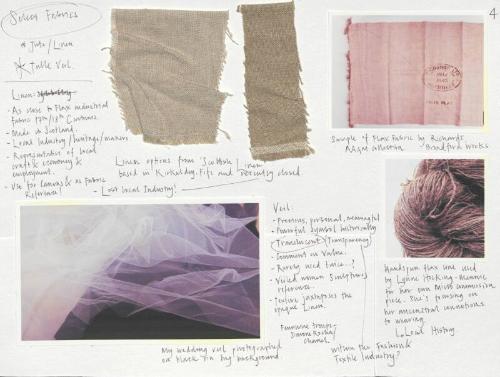 4
Select Fabrics
* Jute/Linen
* Tulle Veil.
Linen
- As close to Flax industrial
fabric 17th/18th Centuries.
- Made in Scotland.
- Local Industry/heritage/makers
- Representative of local
craft & economy &
employment.
- Use for Canvas & as Fabric
Reference!
Linen options from 'Scottish Linen'
based in Kirkcaldy, Fife and recently closed
- Lost local Industry!
Sample of Flax Fabric by Richards
Broadford Works
collection
Veil:
- Precious, personal, meaningful
- Powerful symbol historically
- Translucent (Transparency)
- Comment on Value.
- Rarely used twice..?
- Veiled women Sculptures
reference.
- Texture juxtaposes the
opaque Linen
Feminine tropes -
Simone Rocha/
Chanel?
within the Fashion &
Textile Industry?
Handspun flax line used
by Lynne Hocking-Mennie
for her own commission
piece. She's focusing on
her ancestral connections
to weaving
Local History
My wedding veil photographed
on black bin bag background